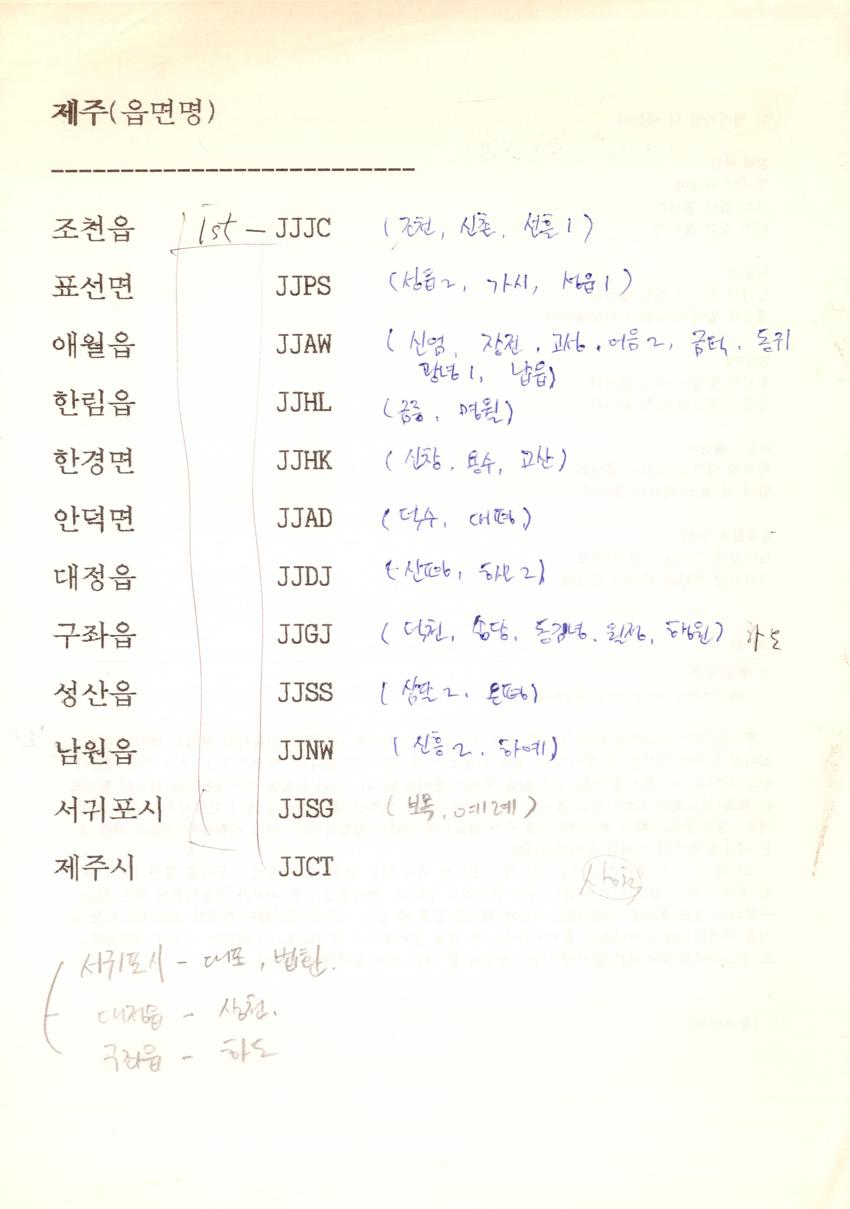 제주(읍면명)
--------------------------
조천읍 1st - JJJC (조천, 신촌, 선흘1)
표선면 JJPS (성읍2, 가시, 성읍1)
애월읍 JJAW (신엄, 장전, 고성, 어음2, 금덕,
광령1, 납읍)
한림읍 JJHL (금릉, 명월)
한경면 JJHK (신창, 용수, 고산)
안덕면 JJAD (덕수, 대평)
대정읍 JJDJ (산평, 하모2)
구좌읍 JJGJ (덕천, 송당, 동김녕, 월정, 행원) 하도
성산읍 JJSS (삼달2, 온평)
남원읍 JJNW (신흥2, 하예)
서귀포시 JJSG (보목, 예례)
제주시 JJCT
서귀포시 - 대포, 법환.
대정읍 -
구좌읍 - 하도